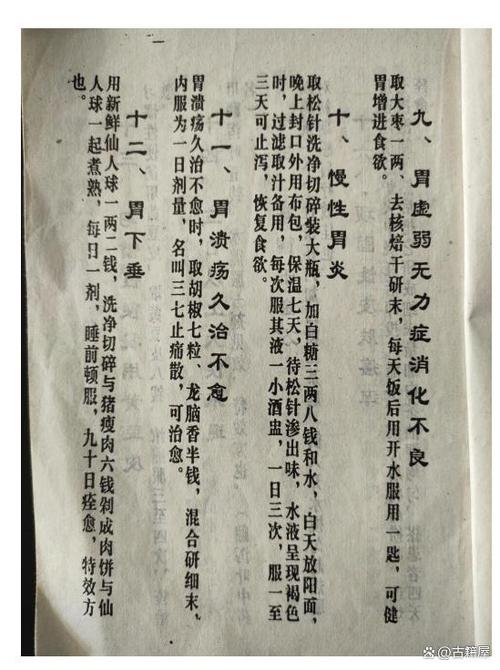 九、胃虚弱无力症消化不良
取大枣一两、去核焙干研末，每天饭后用开水服用一匙，可健
胃增进食欲。
十、慢性胃炎
取松针洗净切碎装大瓶，加白糖三两八钱和水，白天放阳面，
晚上封口外用布包，保温七天，待松针渗出味，水液呈现褐色
时，过滤取汁备用，每次服其液一小酒盅，一日三次，服一至
三天可止泻，恢复食欲。
十一、胃溃疡久治不愈
胃溃疡久治不愈时，取胡椒七粒、龙脑香半钱，混合研细末，
内服为一日剂量，名叫三七止痛散，可治愈。
十二、胃下垂
用新鲜仙人球一两二钱，洗净切碎与猪瘦肉六钱剁成肉饼与仙
人球一起煮熟，每日一剂，睡前顿服，九十日痊愈，特效方
也。
头条 @古籍屋